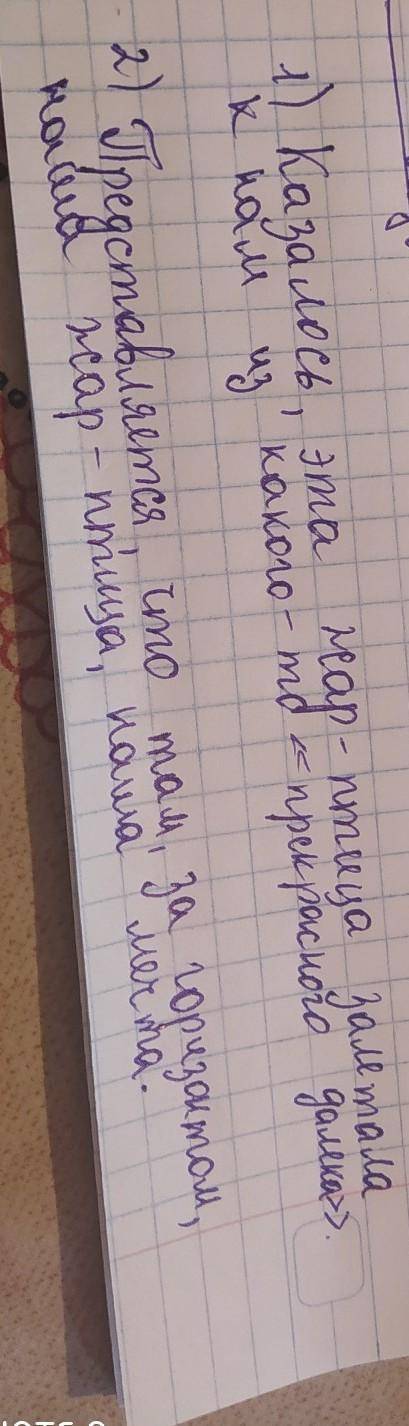 1) Казалось, эта жар-птица залетала
к нам из какого-то «прекрасного далека».
2) Представляется, что там, за горизонтом,
наша жар-птица, наша мечта.